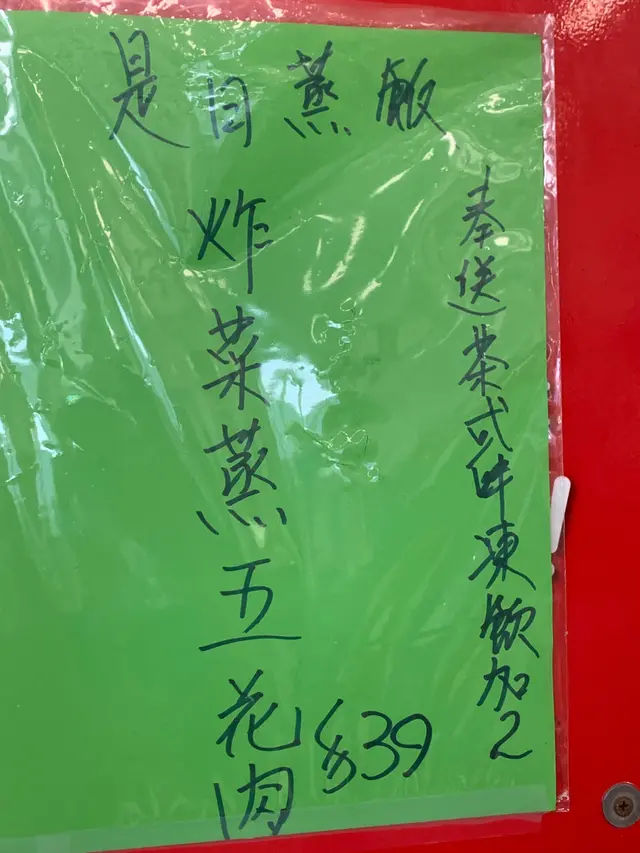 是日蒸飯
奉送茶式咩凍飲加2
炸菜蒸五花肉
$39